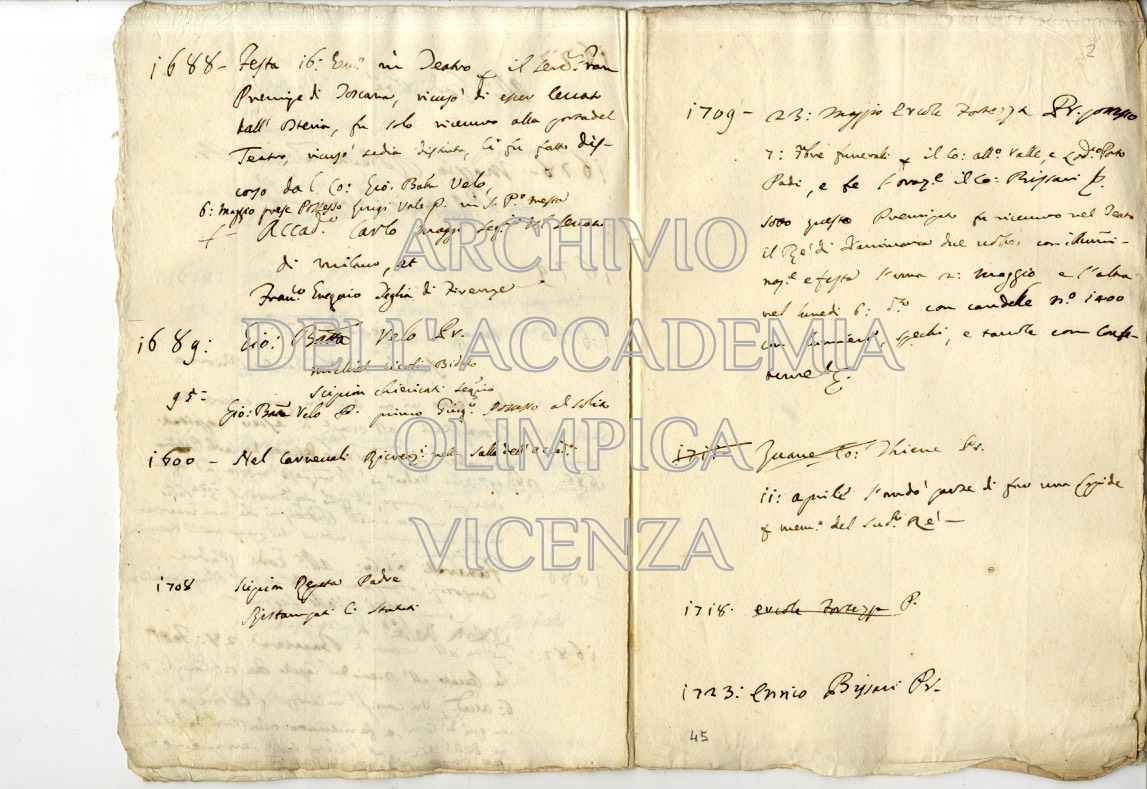 1688 - Festa 16: Gen.º in Teatro p il Ser.º Gran
Prencipe di Toscana, ricusò di esser levato
dall' Osteria, fu solo ricevuto alla porta del
Teatro, ricusò sedia distinta, li fu fatto dis-
corso dal Co: Gio: Batta Velo,
6: Maggio prese Possesso Luigi Valo P. in S. Pº messa
Accad.º Carlo Maggi Seg.º del Senato
di Milano, at
Fran.º Eugenio Teglia di Firenze
1689: Gio: Batta Velo Pr.
95 - Scipion Chiericati
Gio: Batta Velo P. primo Giug.º possesso al solito
1600 - Nel Carnevali nella Salla dell'Acad.
1708 Scipion Padre
Ristampati li Statuti
2
1709 - 23: Maggio Ercole Fortezza Pr. possesso
7: funerali p il Co: Valle, e Porto
Padi, e fe l'oraz.e il Co: Bissari P.
sotto questo Prencipato fu ricevuto nel Teatro
il Rè di Danimarca due volte, con illumi-
naz.e e festa l'una 2: Maggio e l'altra
nel lunedi 6: d.º con candelle nº 1400
con lumiere, spechi, e tavole con Confe-
ture
Zuane Co: Thiene Pr.
11: Aprile l'andò parte di far una Lapide
p mem.a del Sud.º Rè -
1718. Ercole Fortezza P.
1723: Enrico Bissari Pr.
45
ARCHIVIO
DELL'ACCADEMIA
OLIMPICA
VICENZA